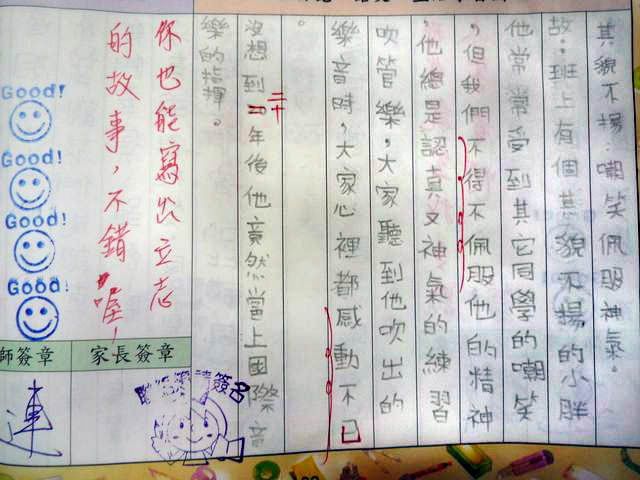 其貌不揚：嘲笑佩服神氣。
故：班上有個其貌不揚的小胖
他常常受到其它同學的嘲笑
，但我們不得不佩服他的精神
，他總是認真又神氣的練習
吹管樂，大家聽到他吹出的
樂音時，大家心裡都感動不已
。
沒想到二十年後他竟然當上國際音
樂的指揮。
你也能寫出立志
的故事，不錯喔！
Good!
Good!
Good!
Good!
師簽章
家長簽章
請簽名
連